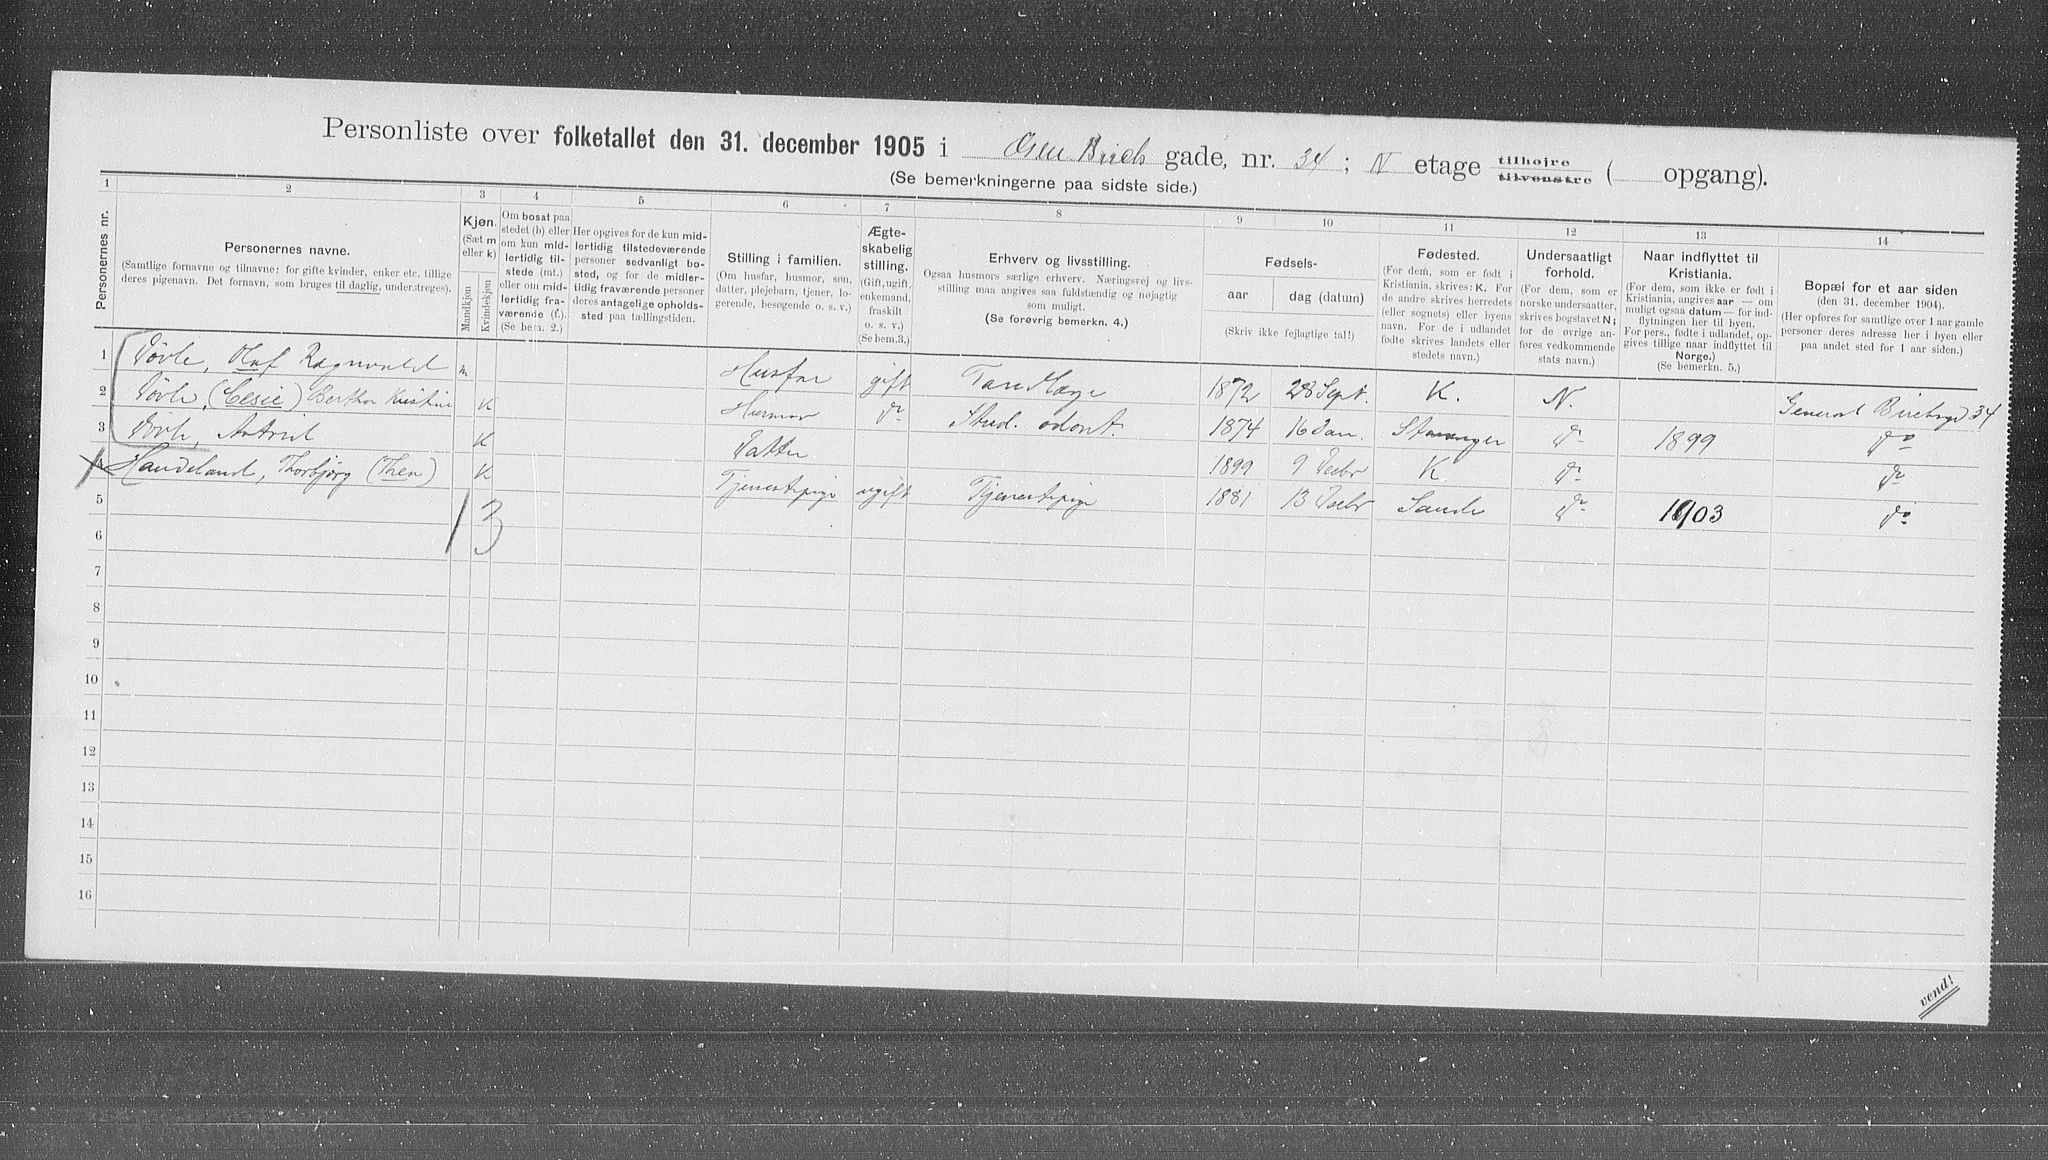 Personliste over folketallet den 31. december 1905 i Gen Birchs gade, nr. 34; N etage tilhøjre tilvenstre ( opgang).
(Se bemerkningerne paa sidste side.)
1 2 3 4 5 6 7 8 9 10 11 12 13 14
Personernes nr.
Personernes navne.
(Samtlige fornavne og tilnavne; for gifte kvinder, enker etc. tillige
deres pigenavn. Det fornavn, som bruges til daglig, understreges).
Kjøn.
(Sæt m
eller k)
Mandkjøn
Kvindekjøn
Om bosat paa
stedet (b) eller
om kun mid-
lertidig til-
stede (mt.)
eller om mid-
lertidig fra-
værende (f.).
(Se bem. 2.)
Her opgives for de kun mid-
lertidig tilstedeværende
personer sedvanligt bo-
sted, og for de midler-
tidig fraværende personer
deres antagelige opholds-
sted paa tællingstiden.
Stilling i familien.
(Om husfar, husmor, søn,
datter, plejebarn, tjener, lo-
gerende, besøgende o. s. v.)
Ægte-
skabelig
stilling.
(Gift, ugift,
enkemand,
fraskilt
o. s. v.)
(Se bem.3.)
Erhverv og livsstilling.
Ogsaa husmors særlige erhverv. Næringsvej og livs-
stilling maa angives saa fuldstændig og nøjagtig
som muligt.
(Se forøvrig bemerkn. 4.)
Fødsels-
aar
dag (datum)
(Skriv ikke fejlagtige tal!)
Fødested.
(For dem, som er født i
Kristiania, skrives: K. For
de andre skrives herredets
(eller sognets) eller byens
navn. For de i udlandet
fødte skrives landets eller
stedets navn.)
Undersaatligt
forhold.
(For dem, som er
norske undersaatter,
skrives bogstavet N;
for de øvrige an-
føres vedkommende
stats navn.)
Naar indflyttet til
Kristiania.
(For dem, som ikke er født i
Kristiania, angives aar — om
muligt ogsaa datum — for ind-
flytningen her til byen.
For pers., fødte i udlandet, op-
gives tillige naar indflyttet til
Norge.)
(Se bemerkn. 5.)
Bopæl for et aar siden
(den 31. december 1904).
(Her opføres for samtlige over 1 aar gamle
personer deres adresse her i byen eller
paa andet sted for 1 aar siden.)
1 Døvle, Oluf Ragnvald m Husfar gift Tandlæge 1872 28 Sept. K. N. General Birchsgd 34
2 Døvle, (Cesie) Bertha Kristine K Husmor do Stud. odont. 1874 16 Jan. Stavanger do 1899 do
3 Døvle, Astrid K Datter 1899 9 Decbr K do do
4 Handeland, Thorbjørg (Then) K Tjenestepige ugift Tjenestepige 1881 13 Decbr Sande do 1903 do
5 1 3
6
7
8
9
10
11
12
13
14
15
16
vend!